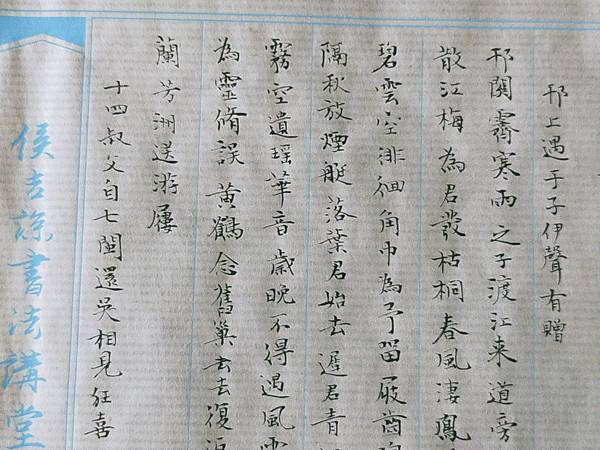 邗上遇于子伊聲有贈
邗関霽寒雨之子渡江来道旁
散江梅為君發枯桐春風淒鳳
碧雲空徘徊角巾為予留屐齒
隔秋放煙艇落葉君始去遲君青
霧空遺瑶華音歳晚不得遇風
為靈脩誤黄鶴念舊巢去去復返
蘭芳洲送游屨
十四叔父自七閩還吴相見狂喜
侯吉諒書法講堂